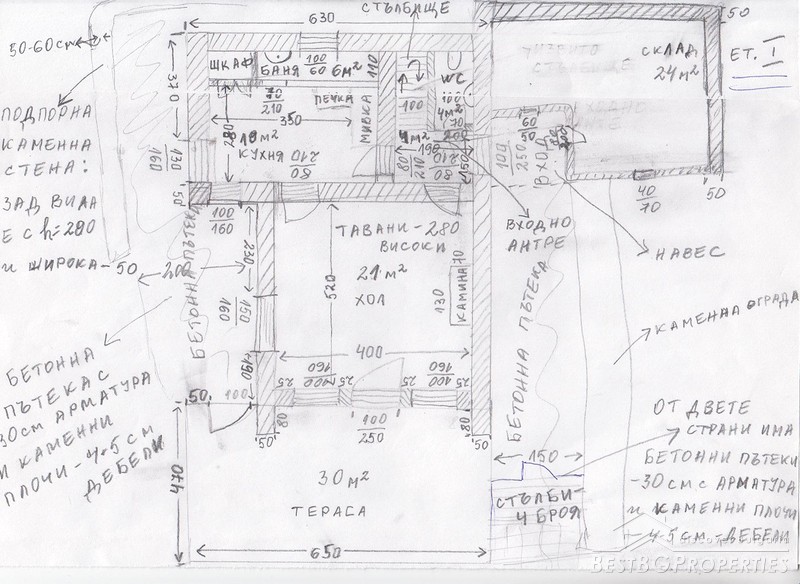 630
СТЪЛБИЩЕ
50
50-60см
ЕТ. I
ШКАФ
БАНЯ
100
60
6м²
110
WC
СКЛАД
24м²
370
70
210
ПЕЧКА
МИВКА
100
100
4м²
70
350
280
10м²
КУХНЯ
80
210
4м²
200
190
80
210
80
210
150
60
50
100
250
ВХОД
200
130
160
40
70
50
ПОДПОРНА
КАМЕННА
СТЕНА:
ЗАД ВИЛА
Е С h=280
И ШИРОКА-50
50
100
160
ТАВАНИ-280
ВИСОКИ
21м²
ХОЛ
ВХОДНО
АНТРЕ
НАВЕС
200
230
520
БЕТОННА ПЪТЕКА
150
160
130
70
КАМИНА
БЕТОННА ПЪТЕКА
КАМЕННА ОГРАДА
400
190
БЕТОННА
ПЪТЕКА С
30СМ АРМАТУРА
И КАМЕННИ
ПЛОЧИ-4-5 СМ
ДЕБЕЛИ
25
160
100
25
25
160
100
25
50
100
80
100
250
80
50
50
470
30м²
ТЕРАСА
150
СТЪЛБИ-
4 БРОЯ
ОТ ДВЕТЕ
СТРАНИ ИМА
БЕТОННИ ПЪТЕКИ
-30СМ С АРМАТУРА
И КАМЕННИ ПЛОЧИ
-4-5СМ-ДЕБЕЛИ
650
BESTBGPROPERTIES